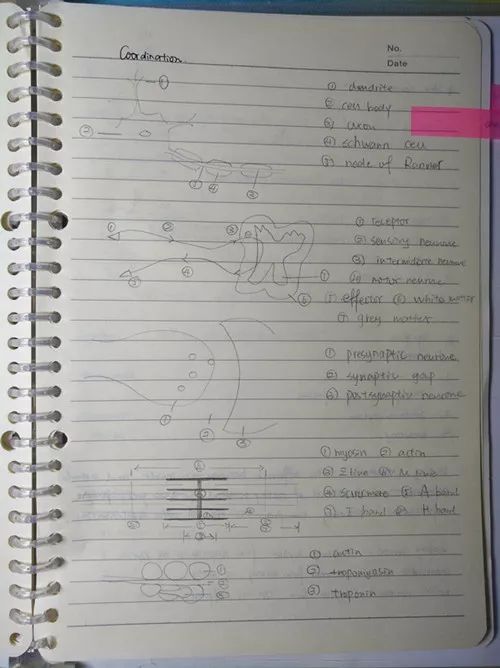 Coordination
No.
Date
① dendrite
② cell body
③ axon
④ schwann cell
⑤ node of Ranvier
① receptor
② sensory neurone
③ intermediate neurone
④ motor neurone
⑤ effector ⑥ white matter
⑦ grey matter
① presynaptic neurone
② synaptic gap
③ postsynaptic neurone
① myosin ② actin
③ Z line M line
sarcomere A band
I band H band
① actin
② tropomyosin
③ troponin